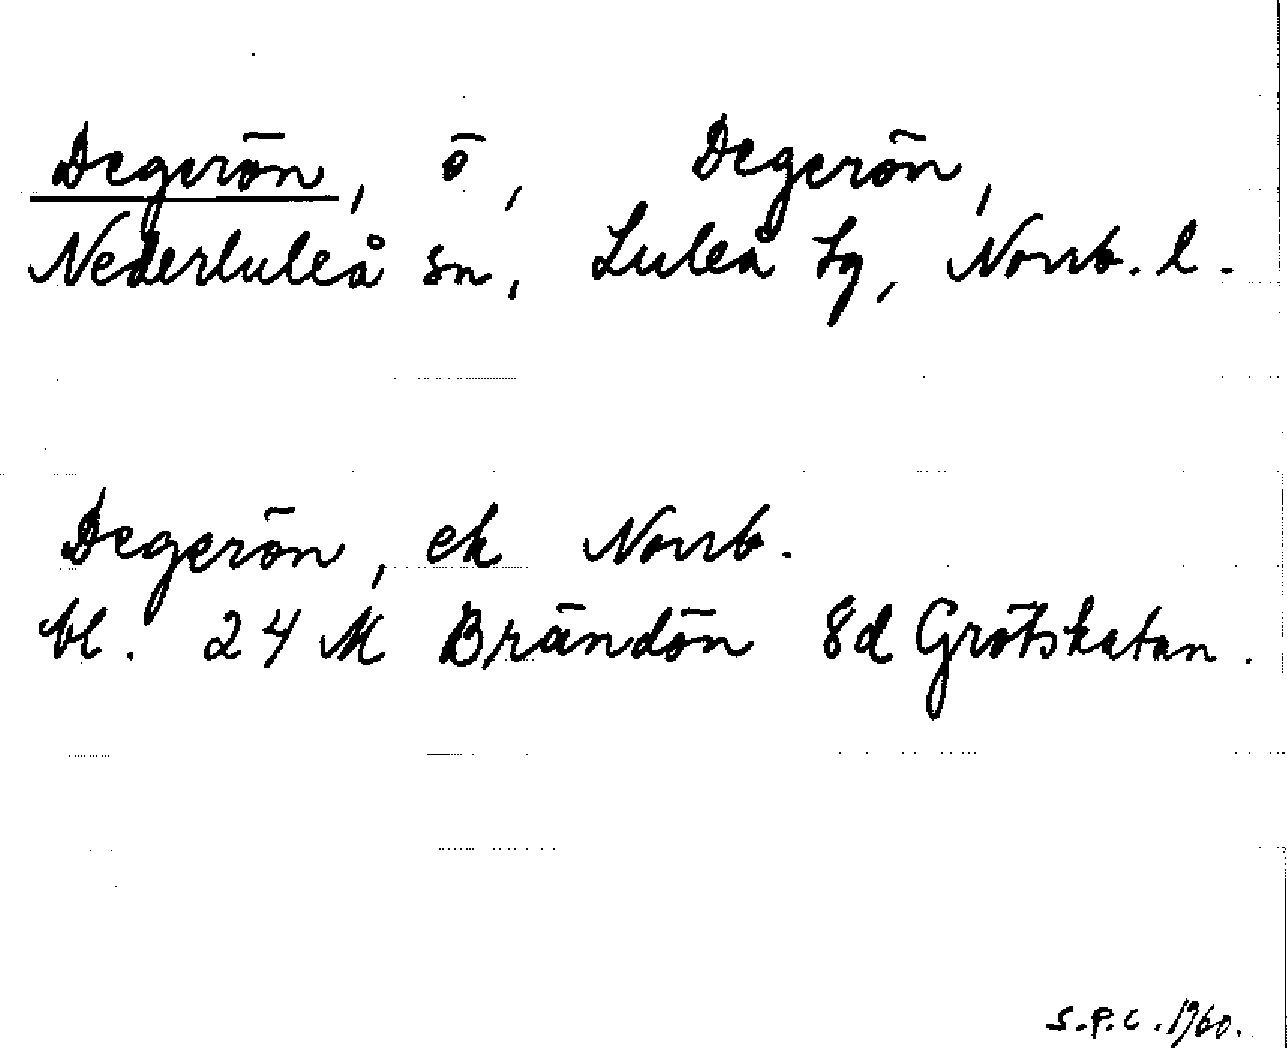 Degerön, ö, Degerön,
Nederluleå sn, Luleå tg, Norrb. l.
Degerön, ek Norrb.
bl. 24 M Brändön 8d Grötskatan.
S.P.C. 1960.